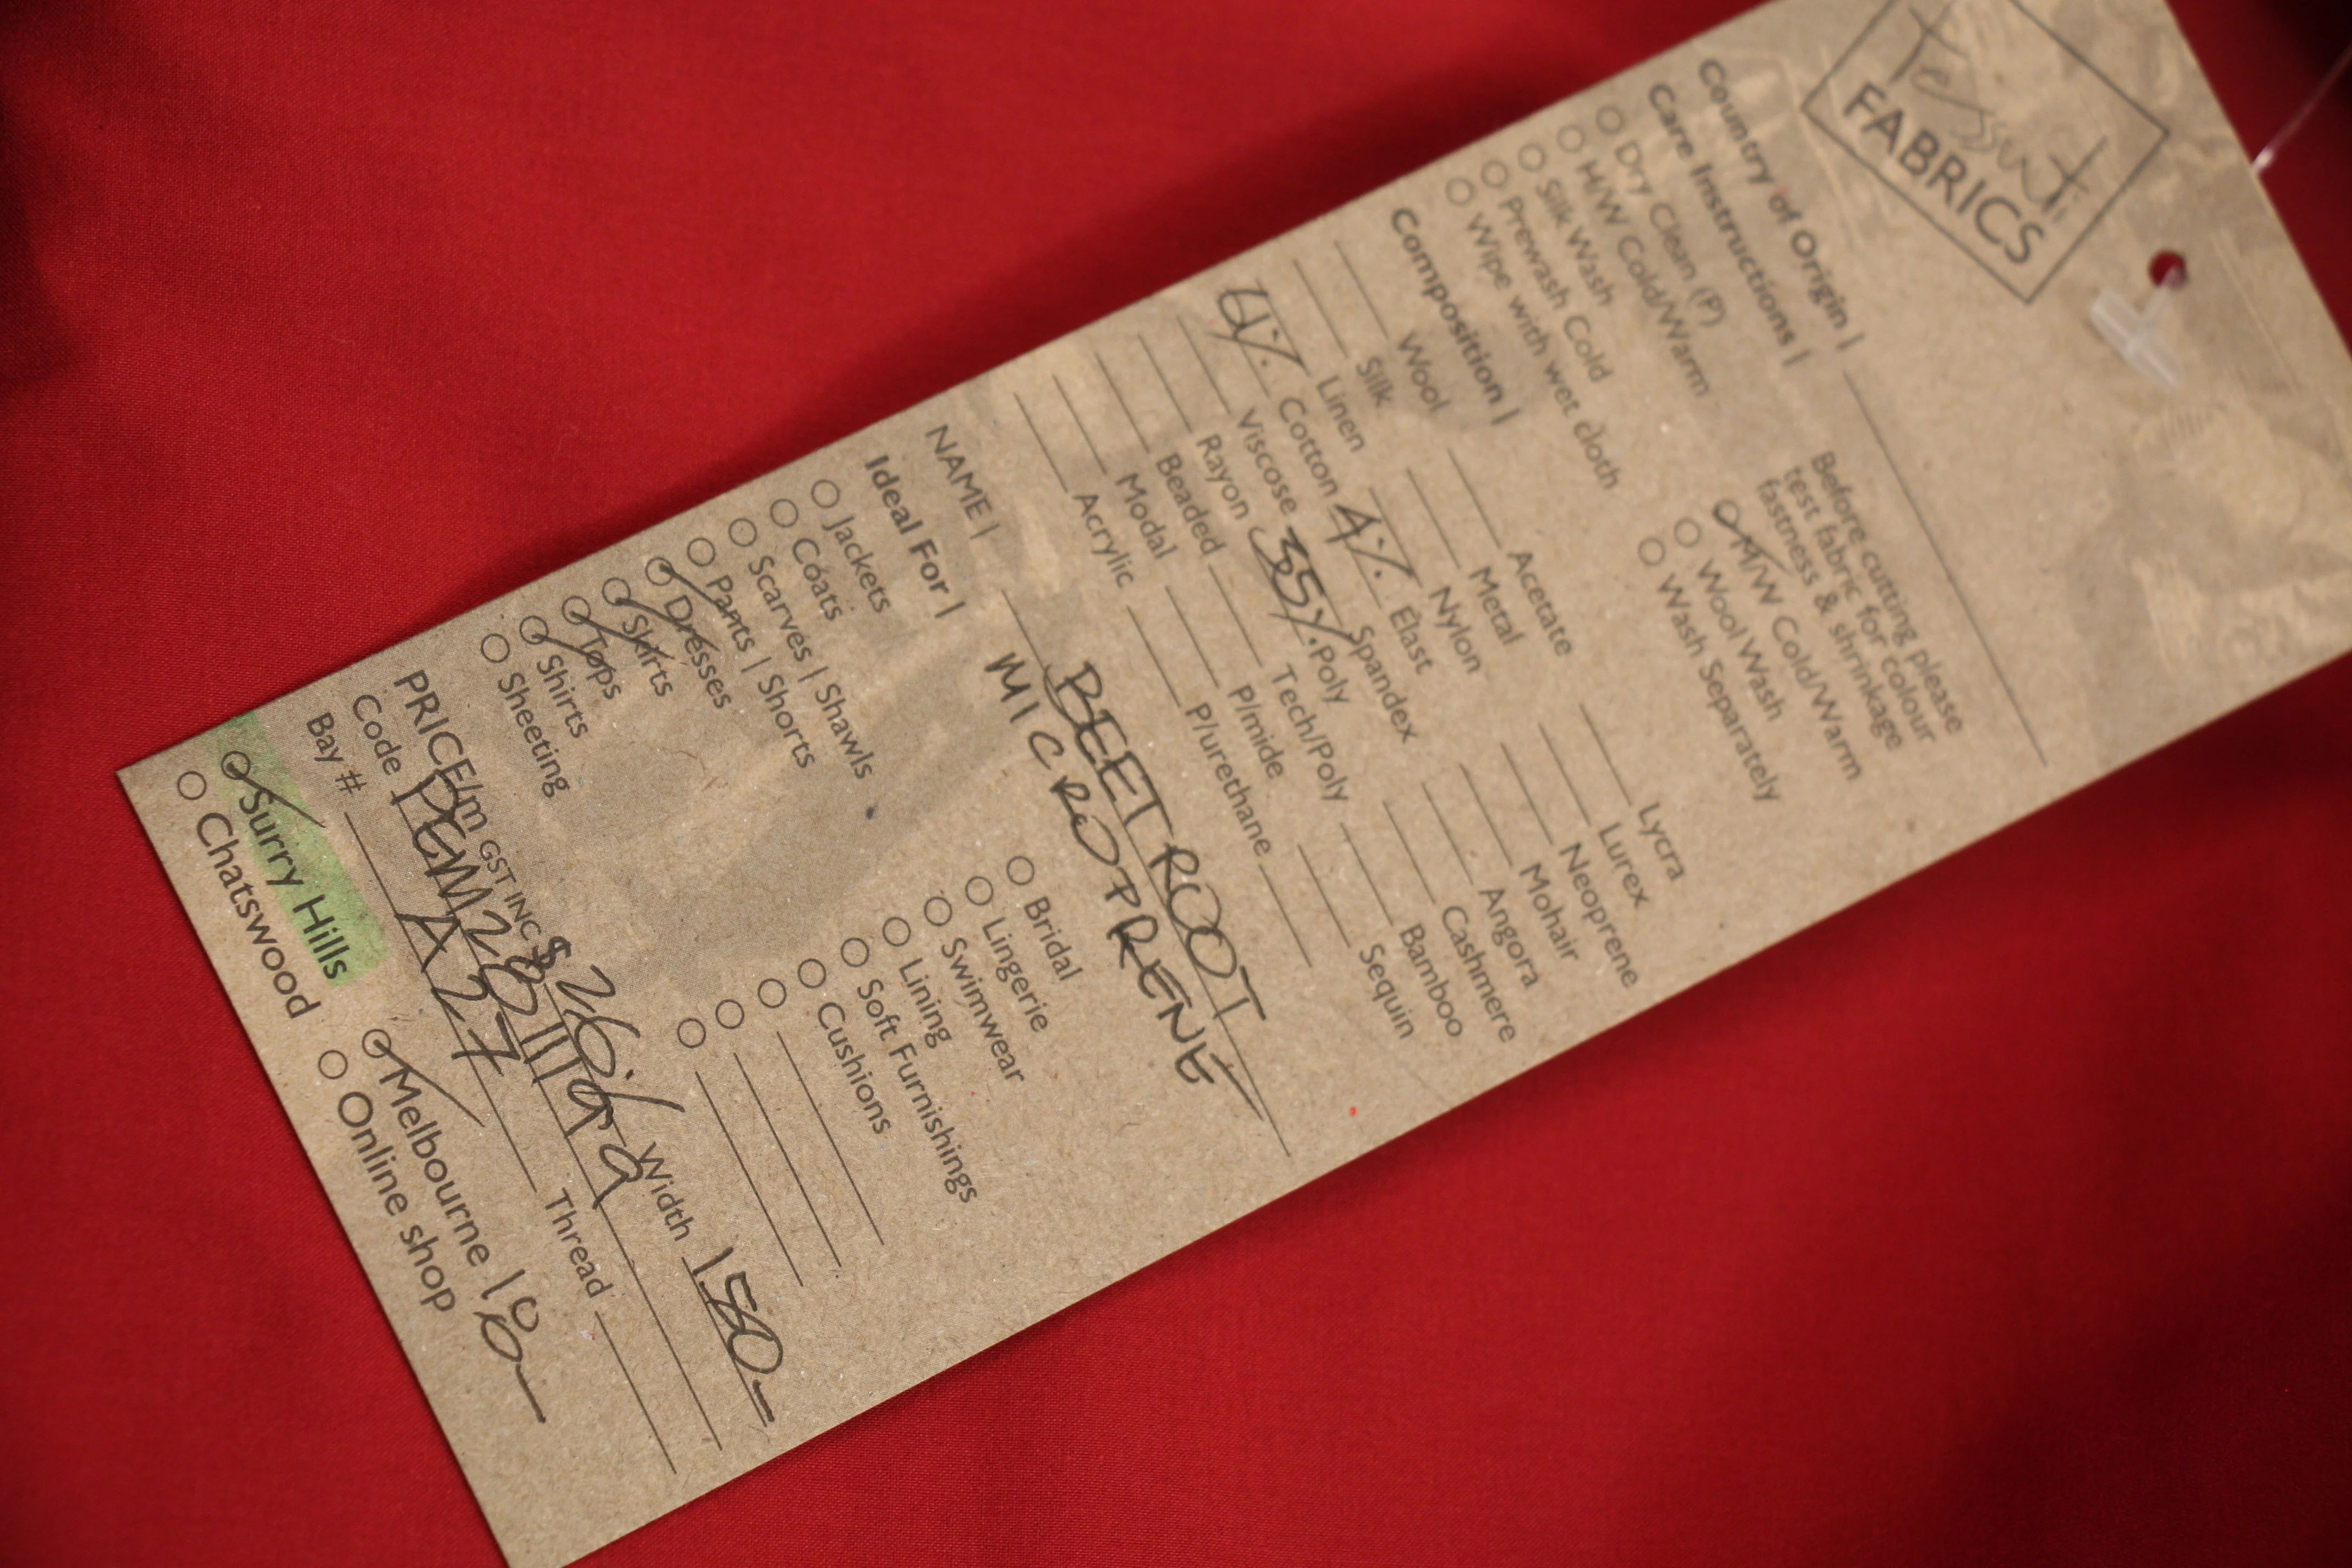 tessuti
FABRICS
Country of Origin |
Care Instructions |
Dry Clean (P)
H/W Cold/Warm
Silk Wash
Prewash Cold
Wipe with wet cloth
Before cutting please
test fabric for colour
fastness & shrinkage
M/W Cold/Warm
Wool Wash
Wash Separately
Composition |
Wool
Silk
Linen
Cotton
Viscose
Rayon
Beaded
Modal
Acrylic
Acetate
Metal
Nylon
4% Elast
Spandex
35% Poly
Tech/Poly
P/mide
P/urethane
Lycra
Lurex
Neoprene
Mohair
Angora
Cashmere
Bamboo
Sequin
NAME | BEETROOT
MICROPRENE
Ideal For |
Jackets
Coats
Scarves | Shawls
Pants | Shorts
Dresses
Skirts
Tops
Shirts
Sheeting
Bridal
Lingerie
Swimwear
Lining
Soft Furnishings
Cushions
PRICE/m GST INC $ Width 150-
Code
Bay # A27 Thread
Surry Hills
Chatswood
Melbourne
Online shop